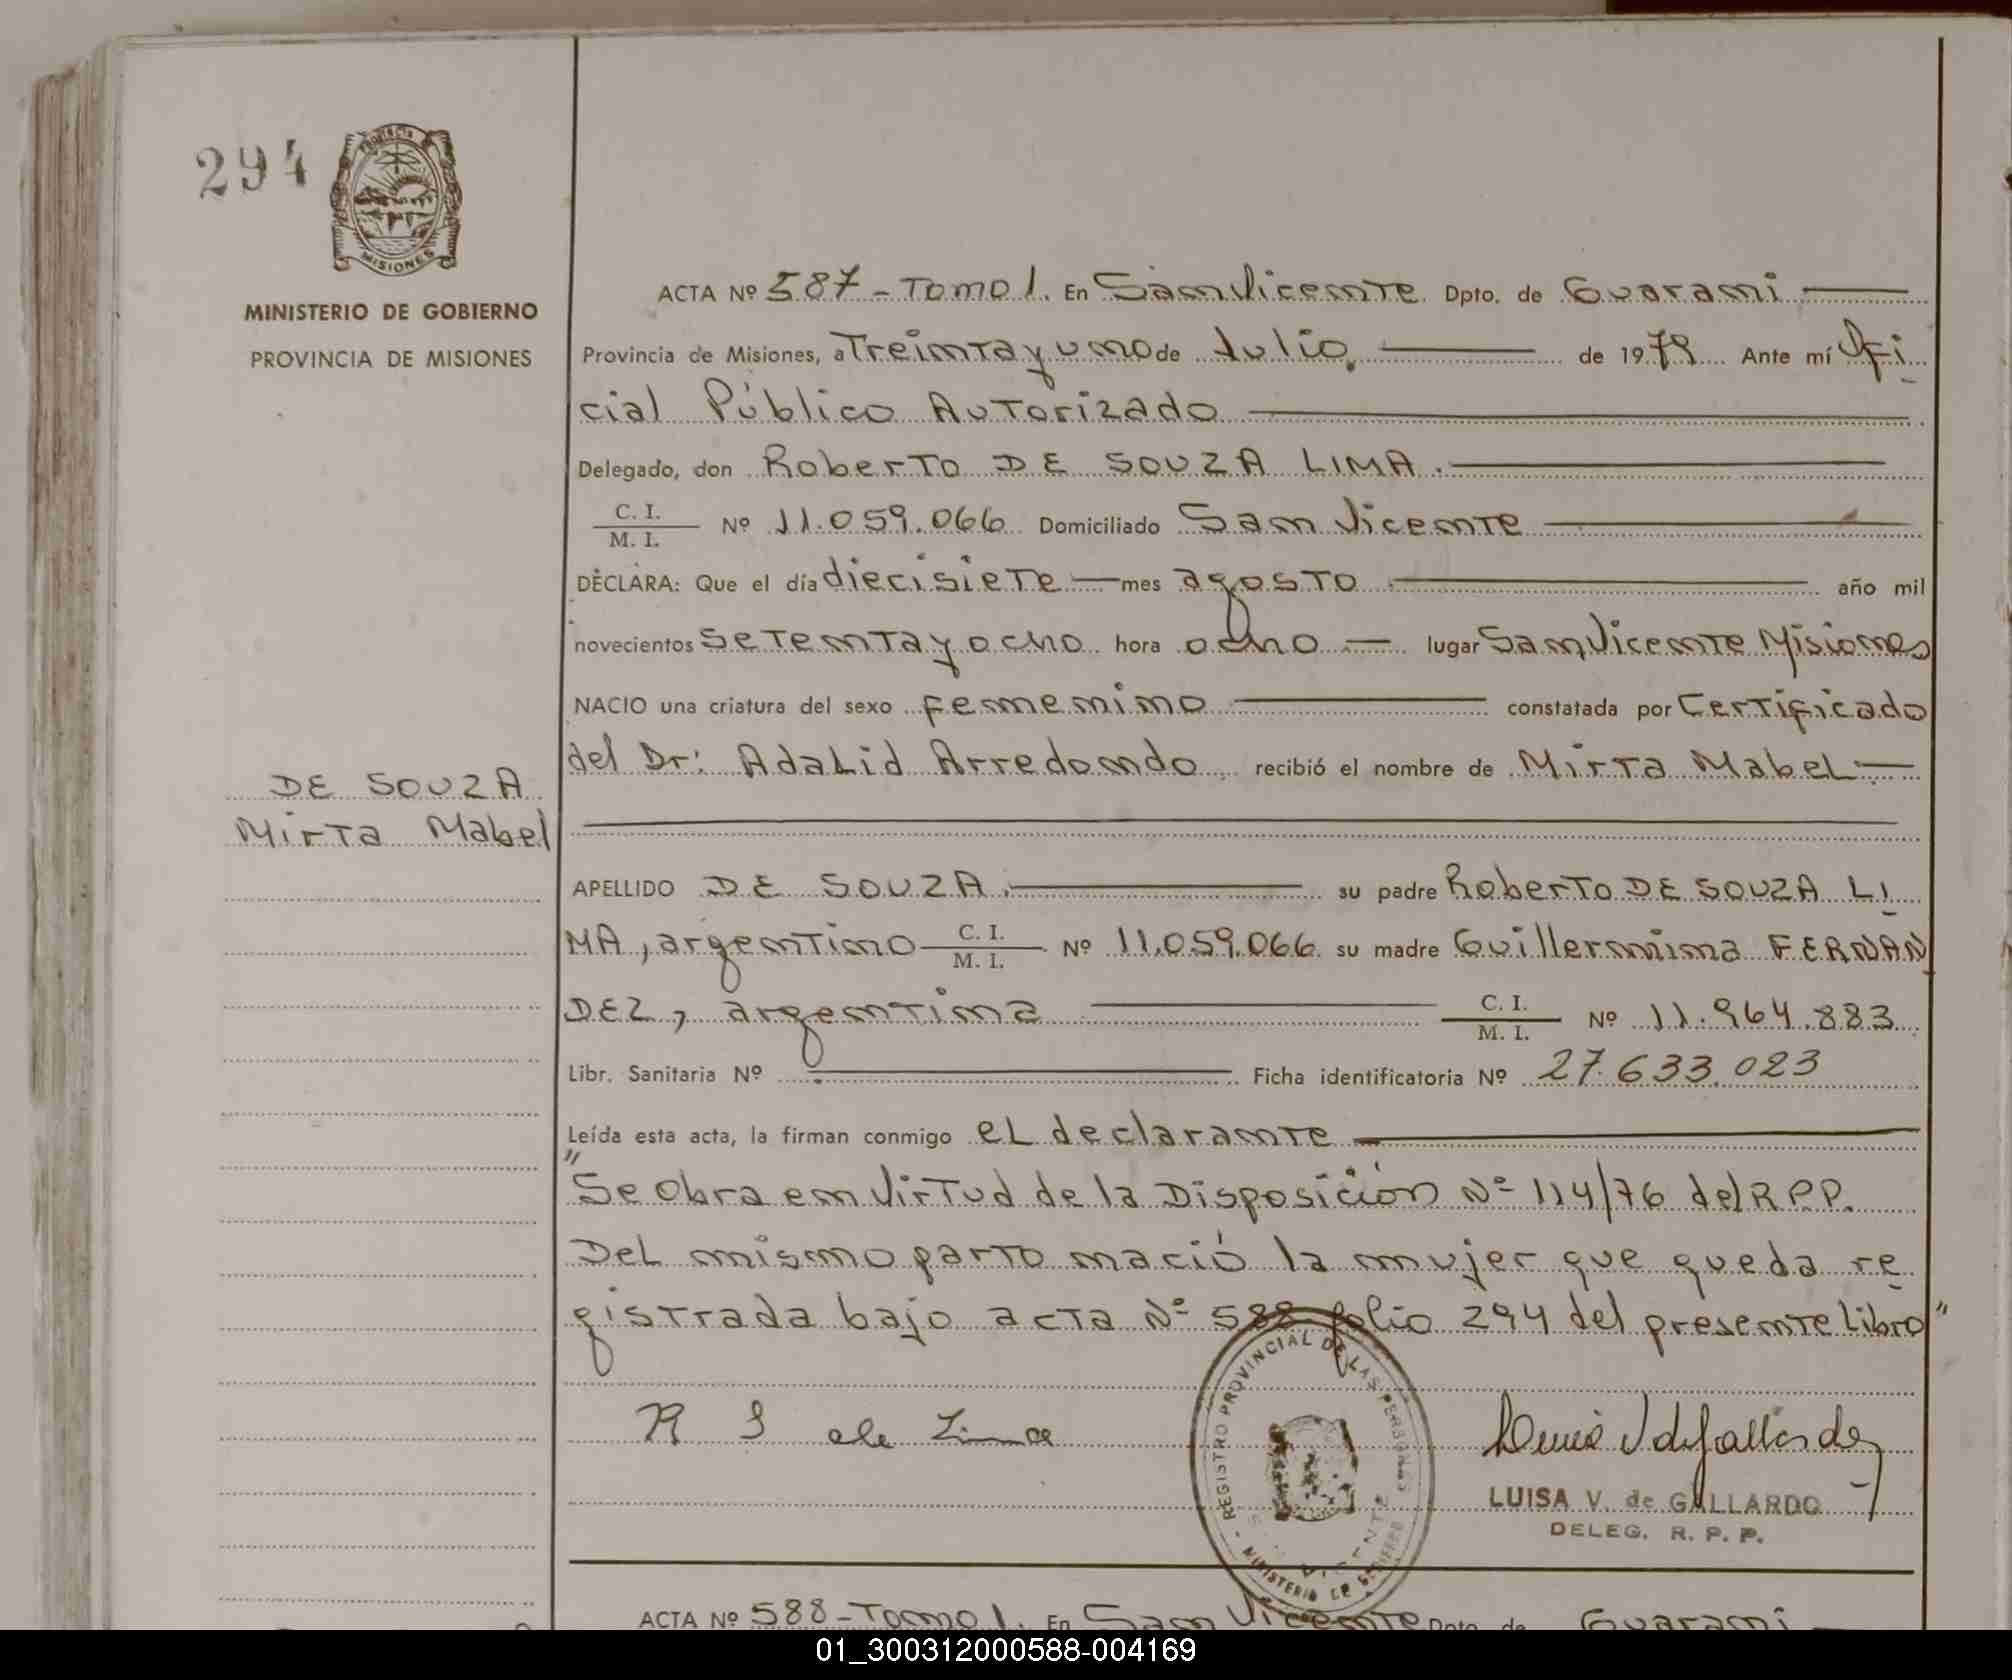 294
PROVINCIA
MISIONES
MINISTERIO DE GOBIERNO
PROVINCIA DE MISIONES
DE SOUZA
Mirta Mabel
ACTA Nº 587 - Tomo 1. En San Vicente Dpto. de Guarani
Provincia de Misiones, a Treinta y uno de Julio, de 1979 Ante mí Ofi
cial Público Autorizado
Delegado, don Roberto DE SOUZA LIMA.
C. I.
M. I. Nº 11.059.066 Domiciliado San Vicente
DECLARA: Que el día diecisiete mes agosto año mil
novecientos setenta y ocho hora ocho lugar San Vicente Misiones
NACIO una criatura del sexo femenino constatada por Certificado
del Dr: Adalid Arredondo recibió el nombre de Mirta Mabel
APELLIDO DE SOUZA. su padre Roberto DE SOUZA LI
MA, argentino C. I. M. I. Nº 11.059.066 su madre Guillermina FERNAN
DEZ, argentina C. I. M. I. Nº 11.964.883
Libr. Sanitaria Nº Ficha identificatoria Nº 27.633.023
Leída esta acta, la firman conmigo el declarante
"Se obra en virtud de la Disposición Nº 114/76 del R.P.P.
Del mismo parto nació la mujer que queda re
gistrada bajo acta Nº 588 folio 294 del presente libro"
R S de Lima
REGISTRO PROVINCIAL DE LAS PERSONAS
MINISTERIO DE GOBIERNO
LUISA V. de GALLARDO
DELEG. R. P. P.
ACTA Nº 588 - Tomo 1. En San Vicente Dpto. de Guarani
01_300312000588-004169